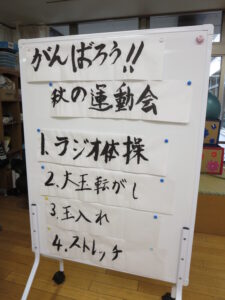 がんばろう!!
秋の運動会
1.ラジオ体操
2.大玉転がし
3.玉入れ
4.ストレッチ